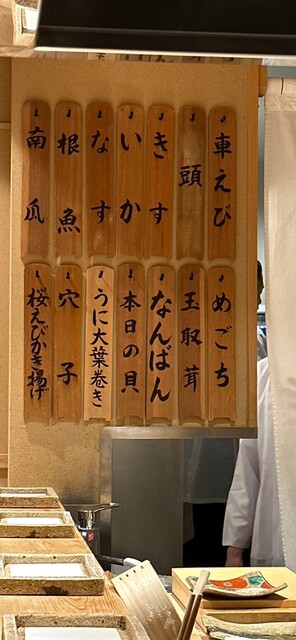 車えび
頭
きす
いか
なす
根魚
南瓜
めごち
玉取茸
なんばん
本日の貝
うに大葉巻き
穴子
桜えびかき揚げ